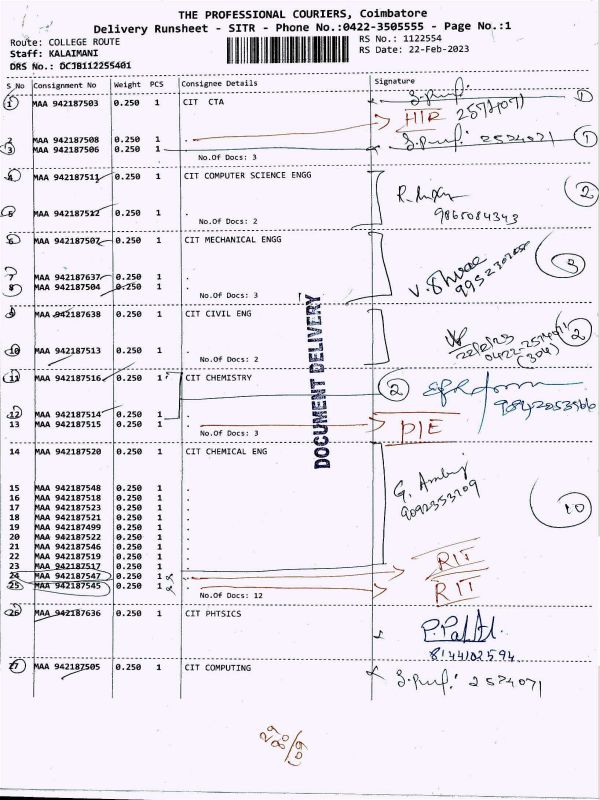 THE PROFESSIONAL COURIERS, Coimbatore
Delivery Runsheet - SITR - Phone No.:0422-3505555 - Page No.:1
Route: COLLEGE ROUTE
Staff: KALAIMANI
DRS No.: DCJB112255401
RS No.: 1122554
RS Date: 22-Feb-2023
S No Consignment No Weight PCS Consignee Details Signature
1 MAA 942187503 0.250 1 CIT CTA
HIR 2574071
2 MAA 942187508 0.250 1 .
3 MAA 942187506 0.250 1 . 2574071 1
No.Of Docs: 3
4 MAA 942187511 0.250 1 CIT COMPUTER SCIENCE ENGG
2
5 MAA 942187512 0.250 1 .
9865084343
No.Of Docs: 2
6 MAA 942187507 0.250 1 CIT MECHANICAL ENGG
3
7 MAA 942187637 0.250 1 .
8 MAA 942187504 0.250 1 .
No.Of Docs: 3
9 MAA 942187638 0.250 1 CIT CIVIL ENG
2
10 MAA 942187513 0.250 1 .
(304)
No.Of Docs: 2
11 MAA 942187516 0.250 1 CIT CHEMISTRY 2
12 MAA 942187514 0.250 1 .
13 MAA 942187515 0.250 1 . PIE
No.Of Docs: 3
DOCUMENT DELIVERY
14 MAA 942187520 0.250 1 CIT CHEMICAL ENG
15 MAA 942187548 0.250 1 .
16 MAA 942187518 0.250 1 .
17 MAA 942187523 0.250 1 .
18 MAA 942187521 0.250 1 .
10
19 MAA 942187499 0.250 1 .
20 MAA 942187522 0.250 1 .
21 MAA 942187546 0.250 1 .
22 MAA 942187519 0.250 1 .
23 MAA 942187517 0.250 1 .
24 MAA 942187547 0.250 1 . RIT
25 MAA 942187545 0.250 1 . RIT
No.Of Docs: 12
26 MAA 942187636 0.250 1 CIT PHTSICS
27 MAA 942187505 0.250 1 CIT COMPUTING
2574071